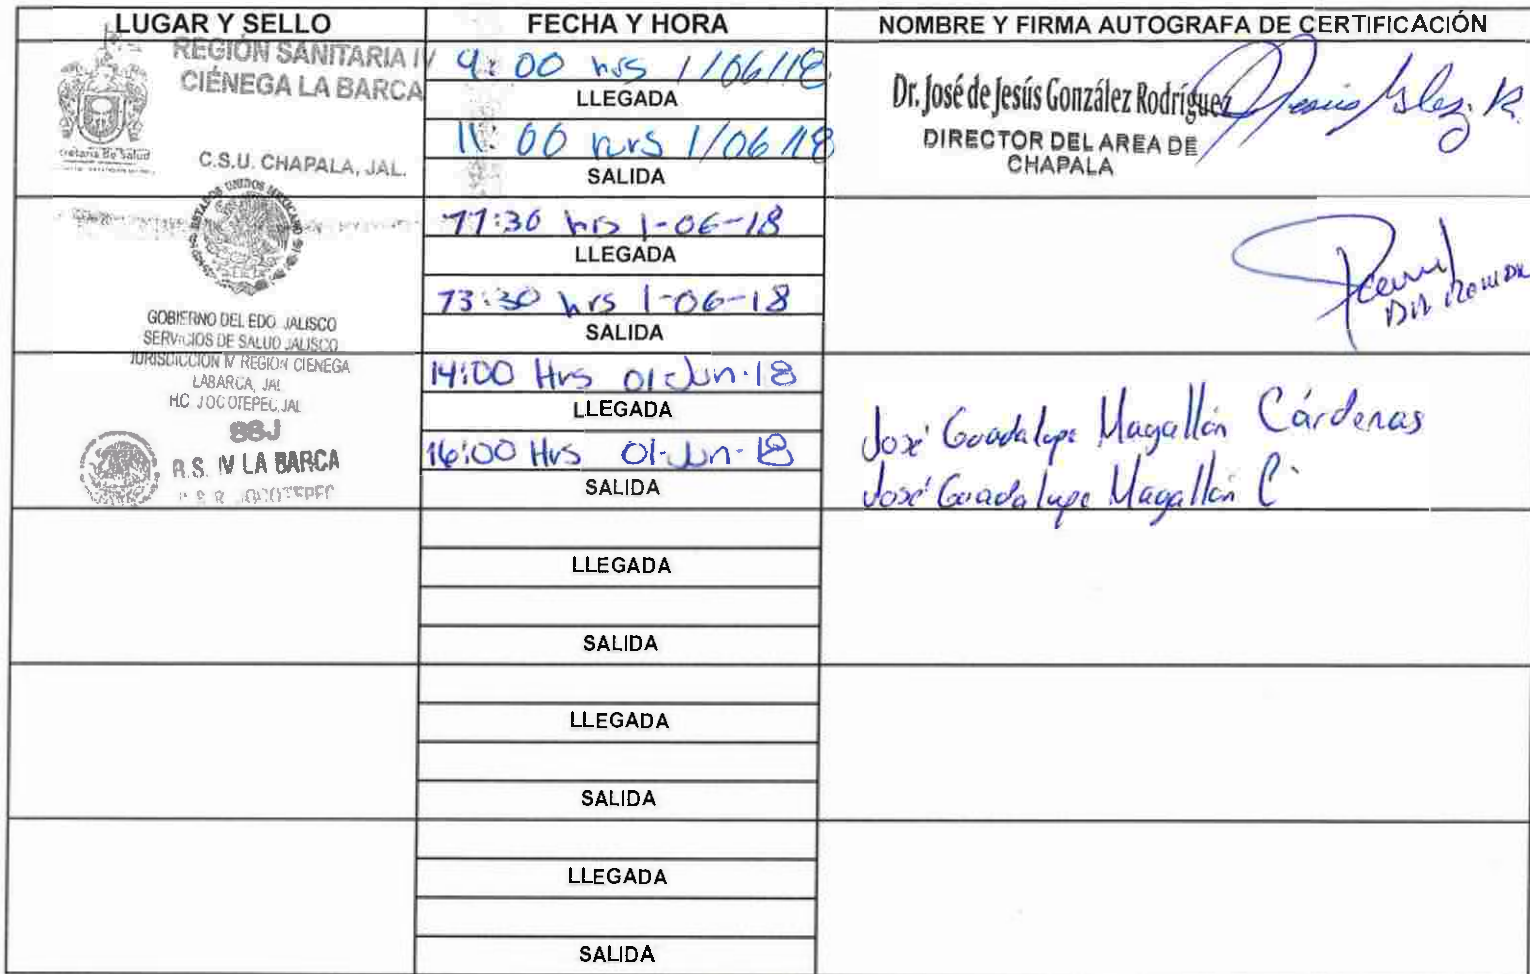 LUGAR Y SELLO
FECHA Y HORA
NOMBRE Y FIRMA AUTOGRAFA DE CERTIFICACIÓN
REGIÓN SANITARIA IV
CIÉNEGA LA BARCA
C.S.U. CHAPALA, JAL.
9:00 hrs 1/06/18
LLEGADA
11:00 hrs 1/06/18
SALIDA
Dr. José de Jesús González Rodríguez
DIRECTOR DEL AREA DE
CHAPALA
Jesús Glez. R.
ESTADOS UNIDOS MEXICANOS
GOBIERNO DEL EDO. JALISCO
SERVICIOS DE SALUD JALISCO
JURISDICCION IV REGION CIENEGA
LABARCA, JAL
H.C. JOCOTEPEC, JAL
11:30 hrs 1-06-18
LLEGADA
13:30 hrs 1-06-18
SALIDA
SSJ
R.S. IV LA BARCA
JOCOTEPEC
14:00 Hrs 01-Jun-18
LLEGADA
16:00 Hrs 01-Jun-18
SALIDA
José Guadalupe Magallón Cárdenas
José Guadalupe Magallón C
LLEGADA
SALIDA
LLEGADA
SALIDA
LLEGADA
SALIDA